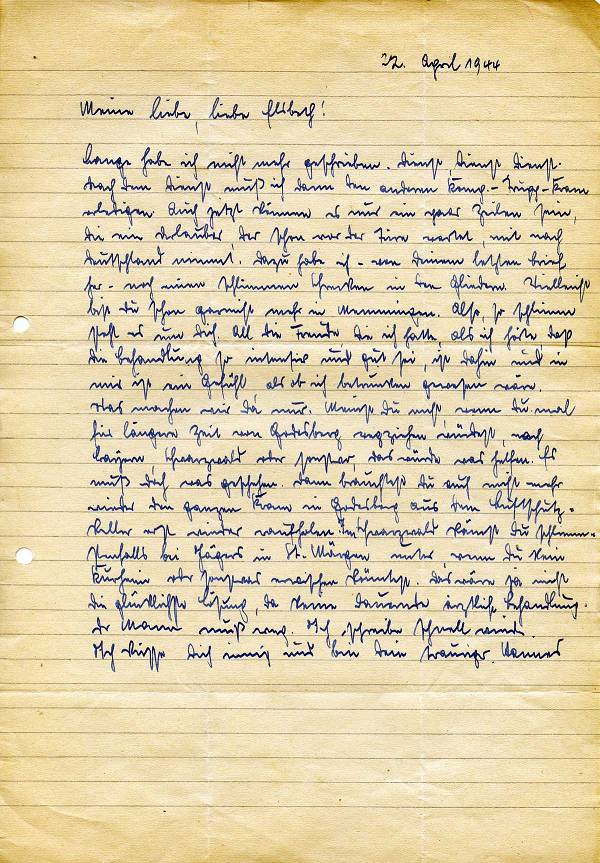 22. April 1944
Meine liebe, liebe Elsbeth!
Lange habe ich nicht mehr geschrieben. Dienst, Dienst Dienst.
Nach dem Dienst muß ich dann den anderen Komp.-Trupp-Kram
erledigen. Auch jetzt können es nur ein paar Zeilen sein,
die ein Urlauber, der schon vor der Türe wartet, mit nach
Deutschland nimmt. Dazu habe ich - von Deinem letzten Brief
her - noch einen schlimmen Schrecken in den Gliedern. Vielleicht
bist Du schon garnicht mehr in Memmingen. Also, so schlimm
steht es um Dich. All die Freude, die ich hatte, als ich hörte, daß
die Behandlung so intensiv und gut sei, ist dahin und in
mir ist ein Gefühl als ob ich betrunken gewesen wäre.
Was machen wir da nur. Meinst Du nicht, wenn Du mal
für längere Zeit von Godesberg wegziehen würdest, nach
Bayern Schwarzwald oder sonstwo, das würde was helfen. Es
muß doch was geschehen. Dann brauchtest Du auch nicht mehr
wieder den ganzen Kram in Godesberg aus dem Luftschutz-
keller erst wieder raufholen. Im Schwarzwald könntest Du schlimm-
stenfalls bei Jägers in St. Märgen unter, wenn Du kein
Kurheim oder sonstwas erwischen könntest. Das wäre ja nicht
die glücklichste Lösung, da keine dauernde ärztliche Behandlung.
Der Mann muß weg. Ich schreibe schnell wieder.
Ich küsse Dich innig und bin Dein trauriger Hannes